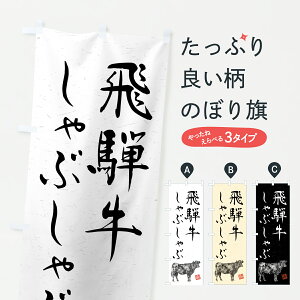 飛騨牛
しゃぶしゃぶ
たっぷり
良い柄
のぼり旗
やったね
えらべる
3タイプ
A
B
C
飛騨牛
しゃぶしゃぶ
飛騨牛
しゃぶしゃぶ
飛騨牛
しゃぶしゃぶ